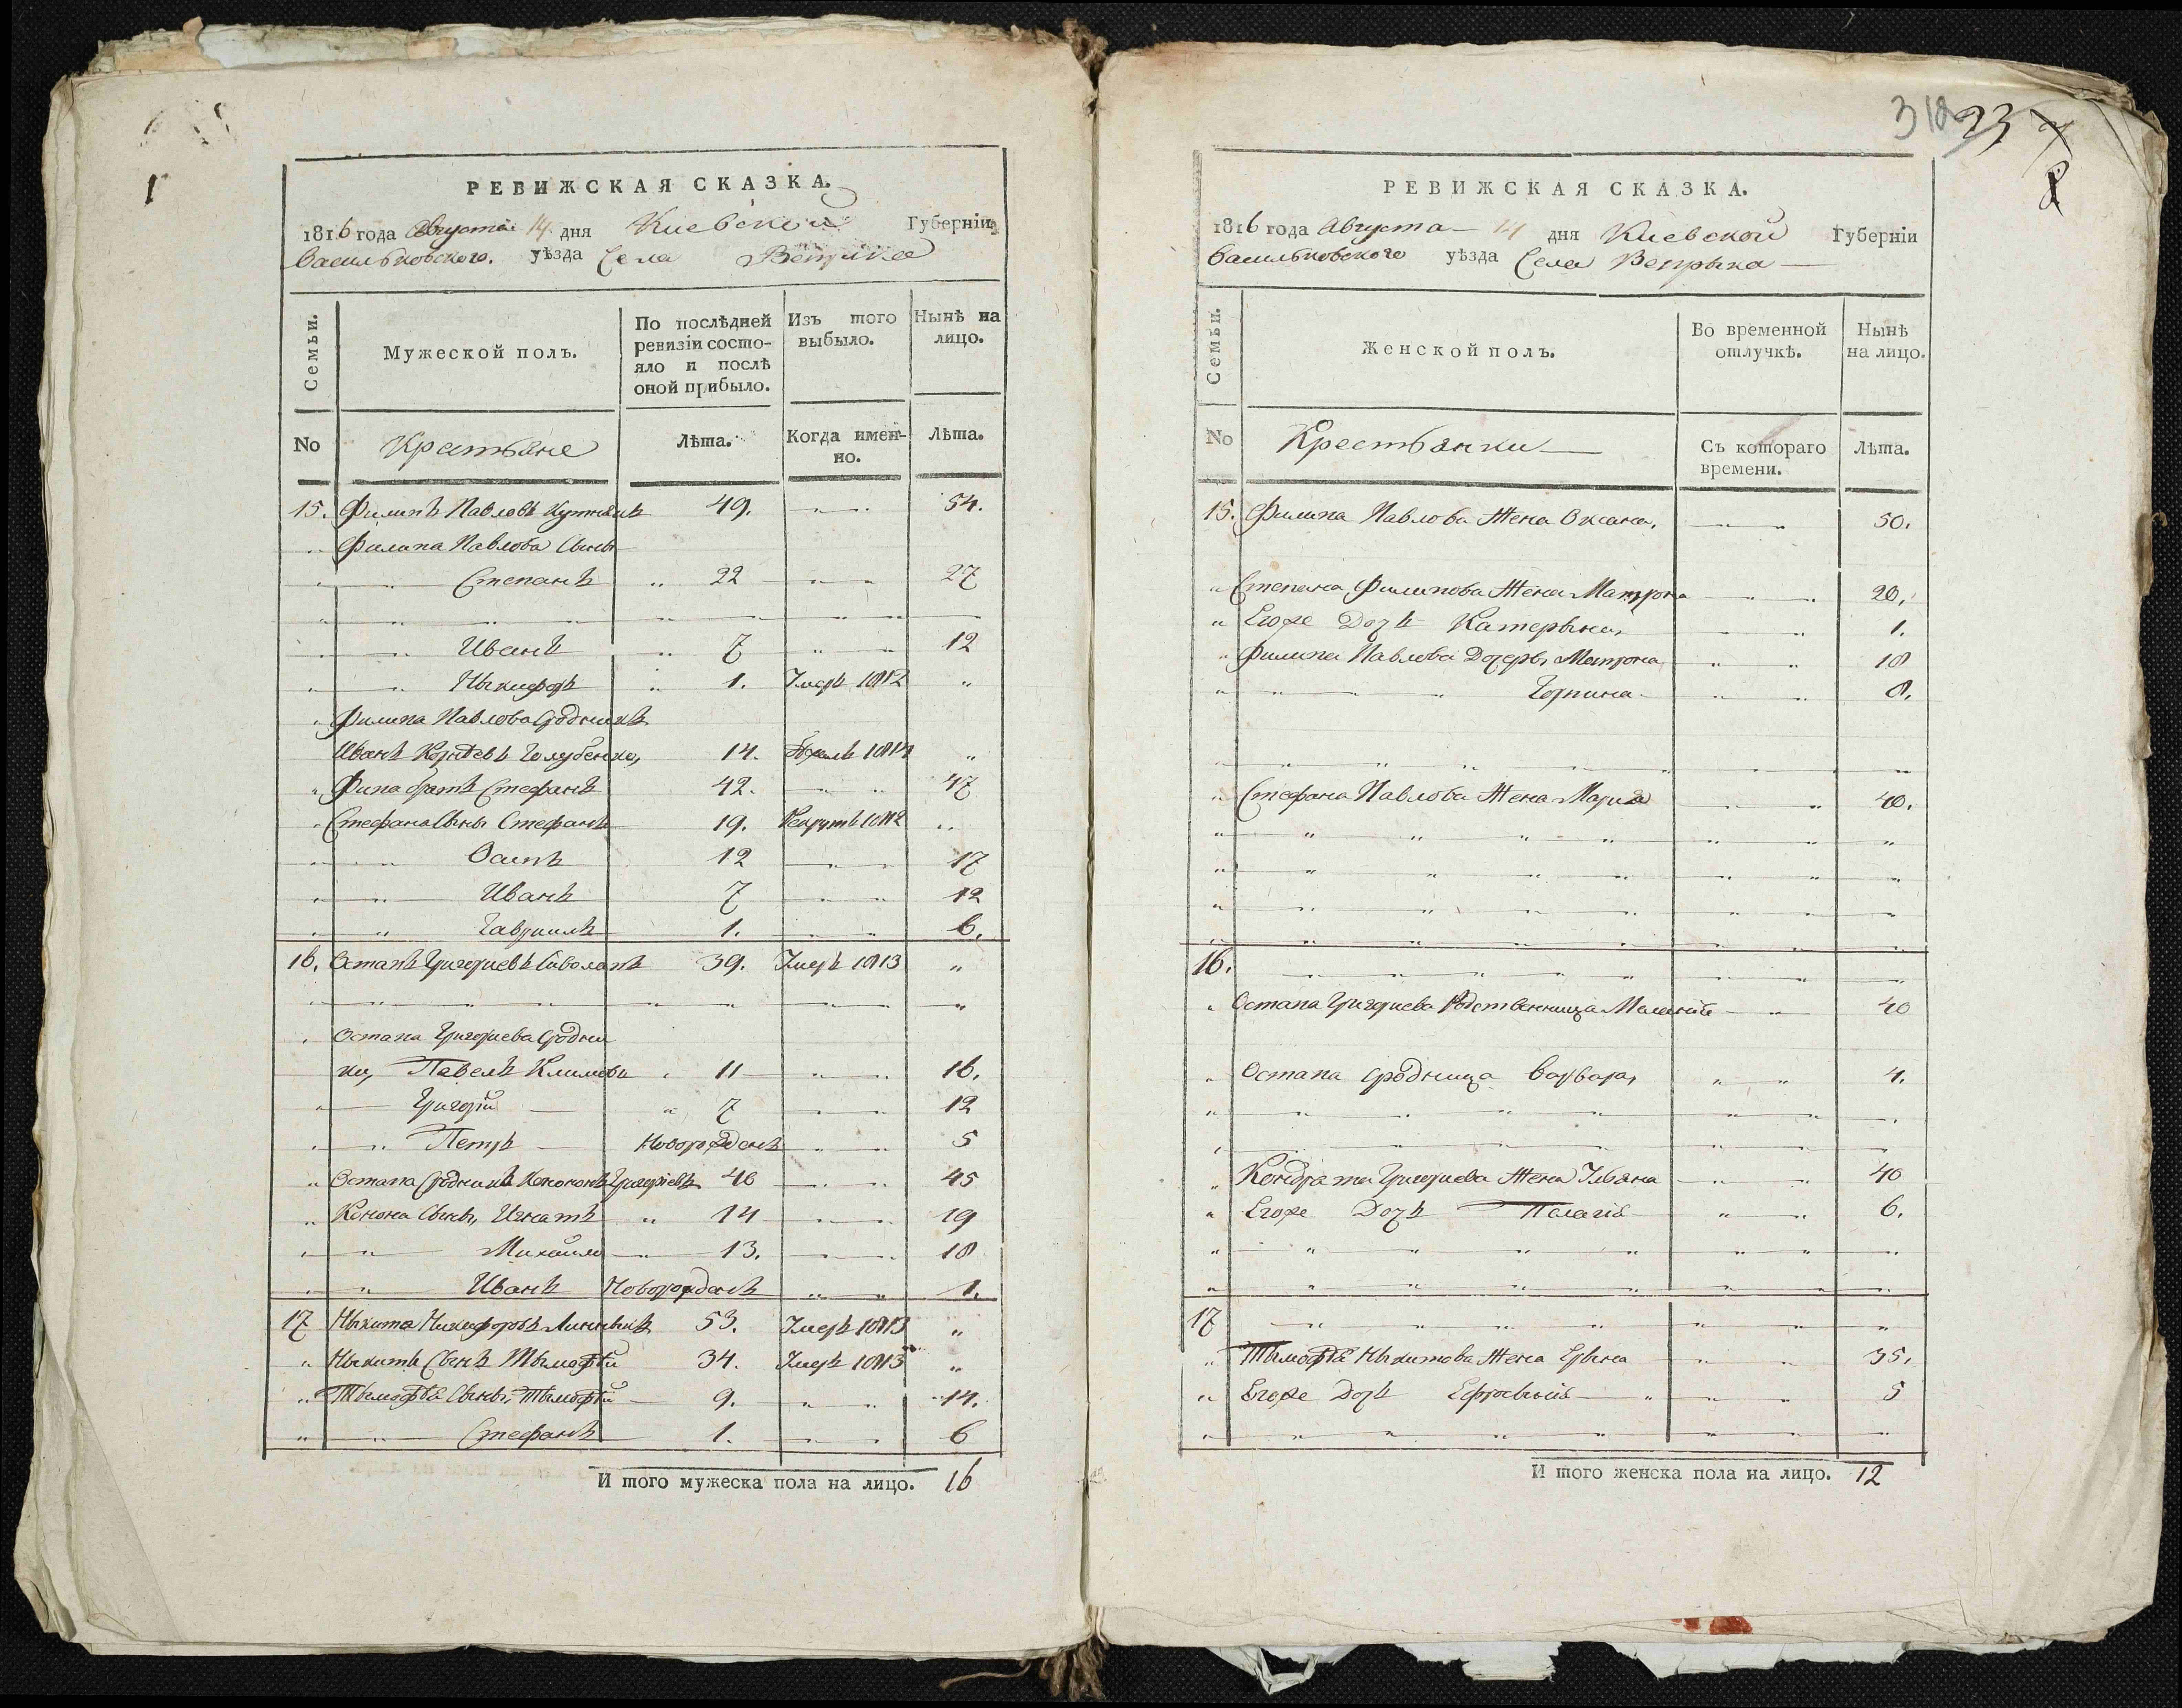 РЕВИЖСКАЯ СКАЗКА.
1816 года Августа 14 дня Киевской Губерніи
Васильковского. уѣзда Села Веприка
Семьи.
Мужеской полъ.
По послѣдней ревизіи состояло и послѣ оной прибыло.
Изъ того выбыло.
Нынѣ на лицо.
No Крестьяне Лѣта. Когда именно. Лѣта.
15. Филипъ Павловъ 49. 54.
Филипа Павлова Сыны
Степанъ 22 27
Иванъ 7 12
Ныкифоръ 1. Умеръ 1812
Филипа Павлова Сродникъ
Иванъ Корнѣевъ Голубенко, 14. 1814
Фипа братъ Стефанъ 42. 47
Стефана Сыны Стефанъ 19. Рекрутъ 1812
Осипъ 12 17
Иванъ 7 12
Гавриилъ 1. 6.
16. Остапъ Григориевъ 39. Умеръ 1813
Остапа Григориева Сродни
ки, Павелъ Климовъ 11 16.
Григорій 7 12
Петръ Новорожденъ 5
Остапа Сродникъ Кононъ Григоріевъ 40 45
Конона Сыны, Игнатъ 14 19
Михайло 13. 18
Иванъ Новорожденъ 1.
17 Ныкита Никифоровъ 53. Умеръ 1813
Ныкиты Сынъ Тымофѣй 34. Умеръ 1813
Тымофѣя Сыны, Тымофѣй 9. 14.
Стефанъ 1. 6
И того мужеска пола на лицо. 16
318 23
РЕВИЖСКАЯ СКАЗКА.
1816 года Августа 14 дня Киевской Губерніи
Васильковского уѣзда Села Вепрыка
Семьи.
Женской полъ.
Во временной отлучкѣ.
Нынѣ на лицо.
No Крестьянки Съ котораго времени. Лѣта.
15. Филипа Павлова Жена Оксана, 50.
Степана Филипова Жена Матрона 20,
Егоже Дочь Катерына, 1.
Филипа Павлова Дочеры Матрона 18
Горпина 8.
Стефана Павлова Жена Мария 40.
16.
Остапа Григориева Родственница 40
Остапа Сродница Варвара, 4.
Кондрата Григориева Жена Ульяна 40
Егоже Дочь Палагія 6.
17
Тымофѣя Ныкитова Жена 35.
Егоже Дочь 5
И того женска пола на лицо. 12